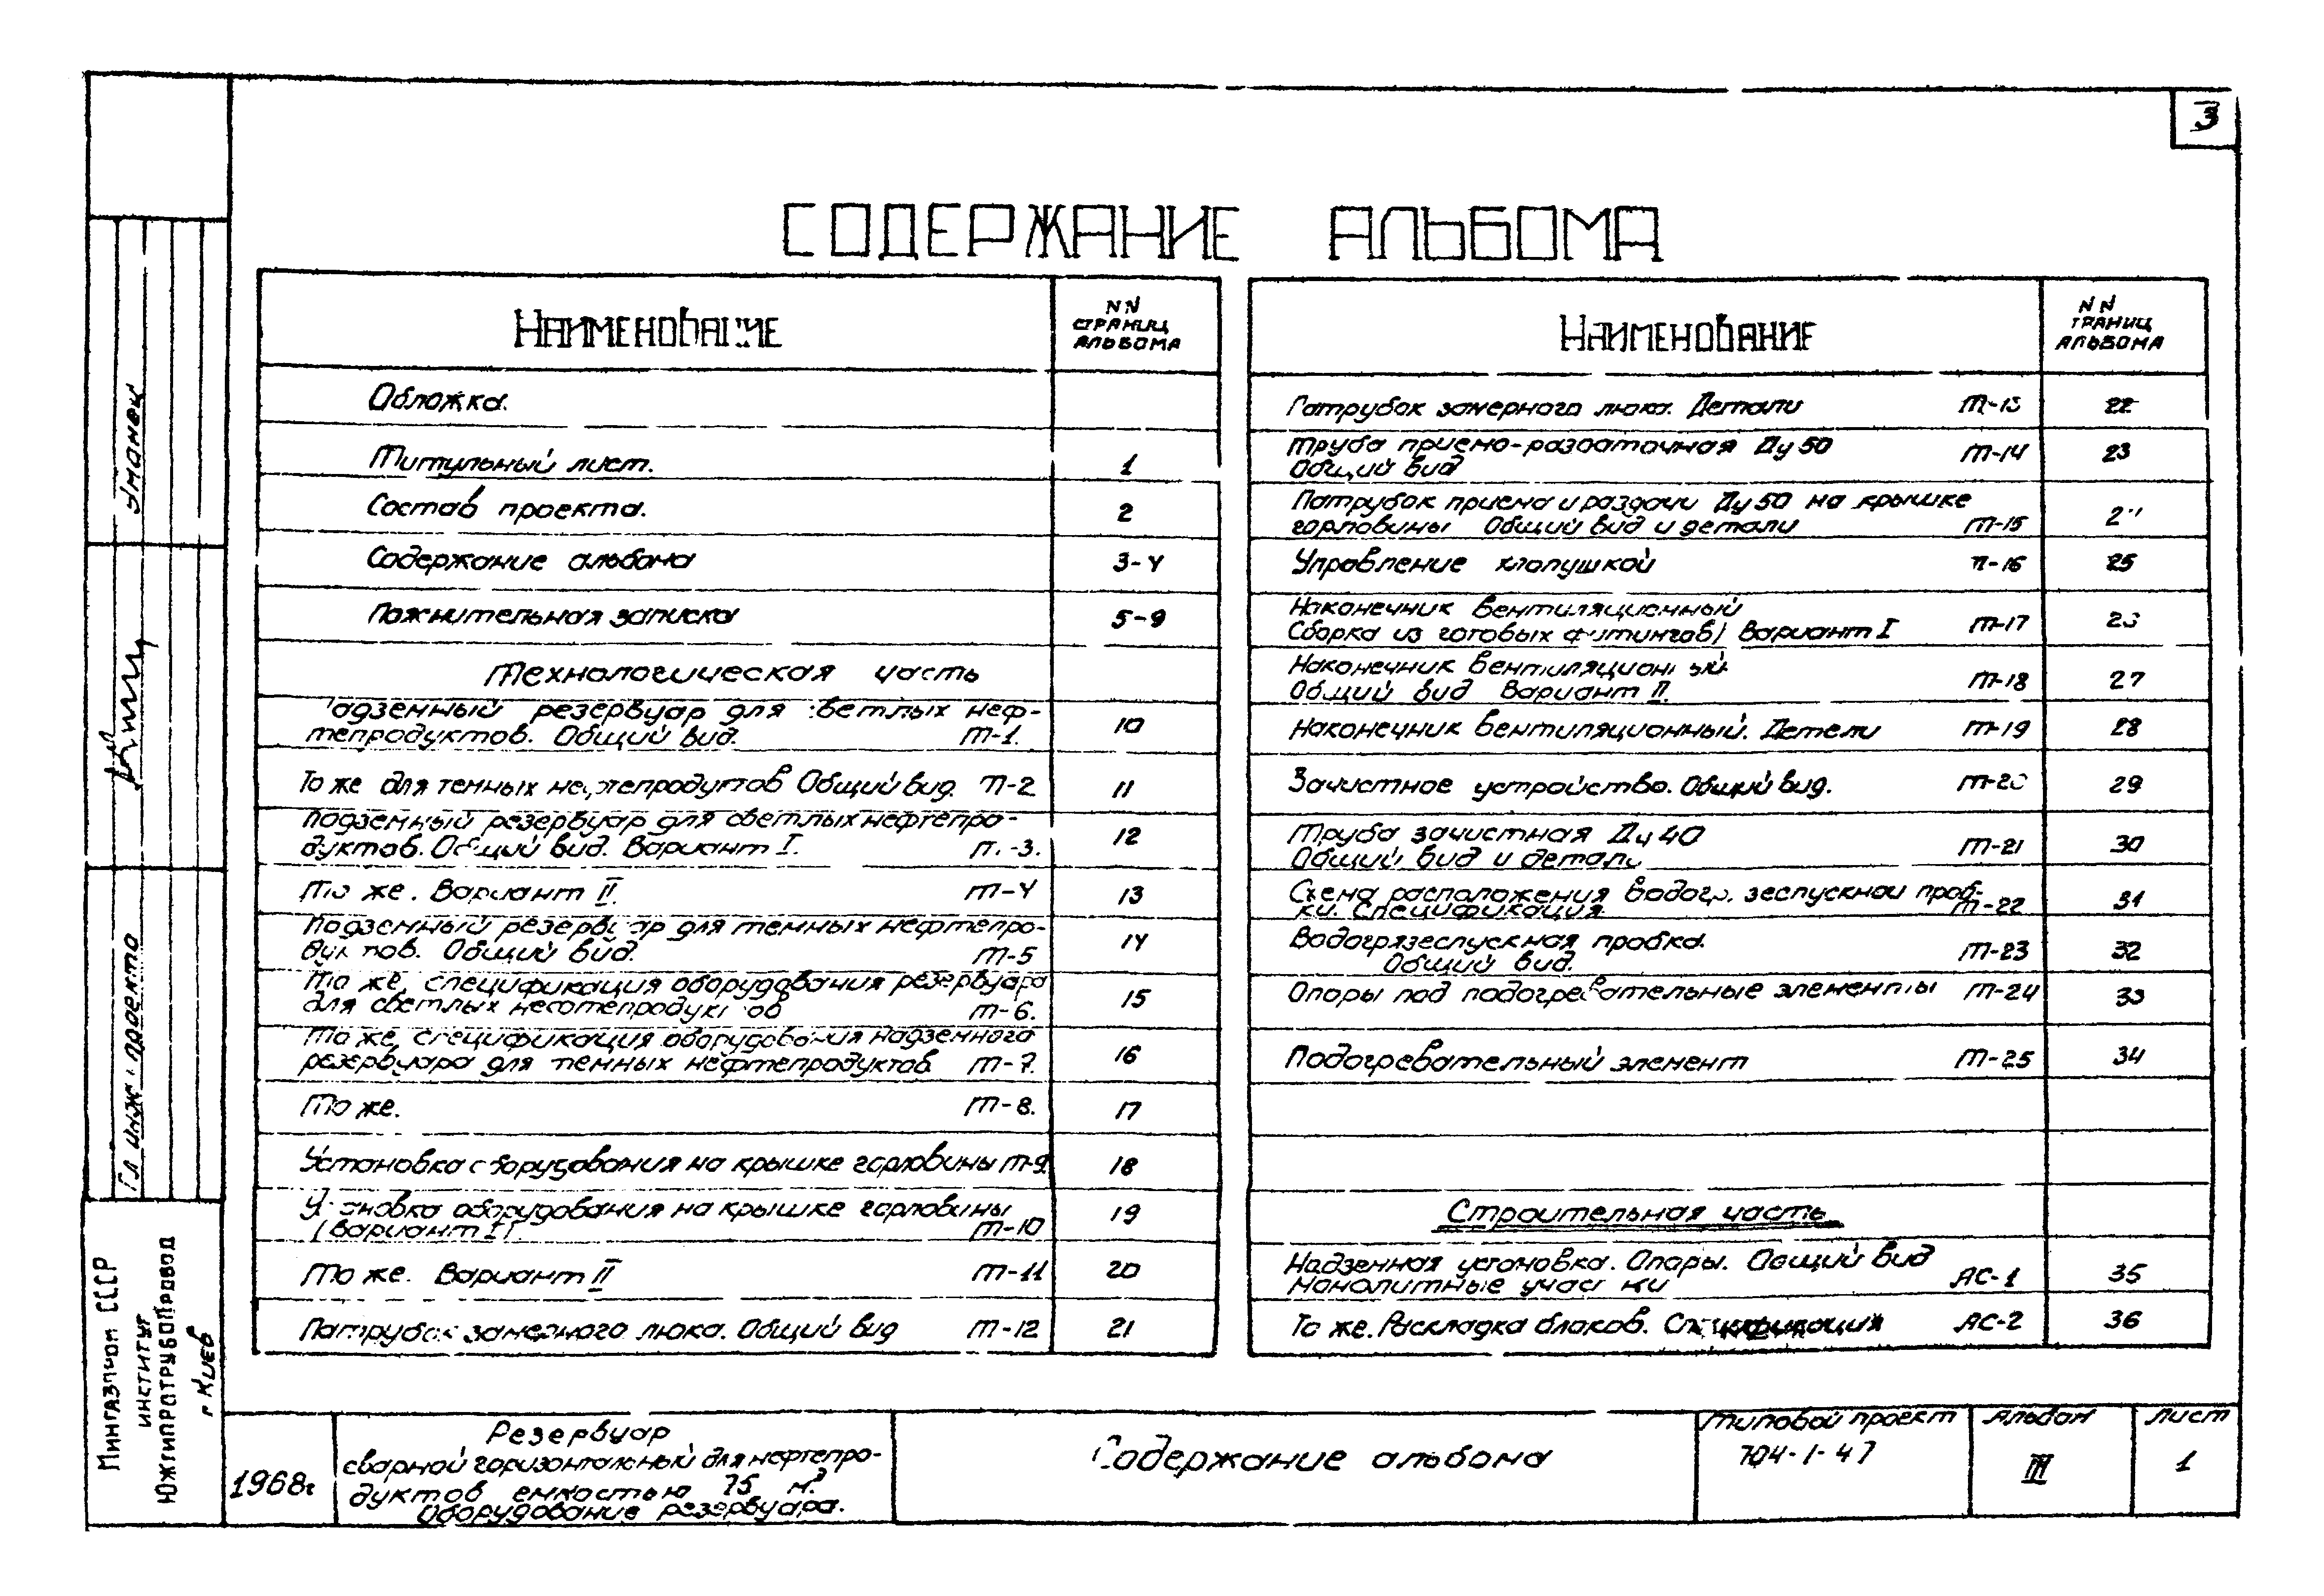 3
СОДЕРЖАНИЕ АЛЬБОМА
НАИМЕНОВАНИЕ
NN
СТРАНИЦ
АЛЬБОМА
Обложка.
Титульный лист. 1
Состав проекта. 2
Содержание альбома 3-4
Пояснительная записка 5-9
Технологическая часть
Надземный резервуар для светлых неф-
тепродуктов. Общий вид. Т-1. 10
То же для темных нефтепродуктов Общий вид. Т-2 11
Подземный резервуар для светлых нефтепро-
дуктов. Общий вид. Вариант I. Т-3. 12
То же. Вариант II. Т-4 13
Подземный резервуар для темных нефтепро-
дуктов. Общий вид. Т-5 14
То же, спецификация оборудования резервуара
для светлых нефтепродуктов Т-6. 15
То же, спецификация оборудования надземного
резервуара для темных нефтепродуктов Т-7. 16
То же. Т-8. 17
Установка оборудования на крышке горловины Т-9. 18
Установка оборудования на крышке горловины
(вариант I). Т-10 19
То же. Вариант II Т-11 20
Патрубок замерного люка. Общий вид Т-12 21
НАИМЕНОВАНИЕ
NN
ТРАНИЦ
АЛЬБОМА
Патрубок замерного люка. Детали Т-13 22
Труба приемо-раздаточная Ду 50
Общий вид Т-14 23
Патрубок приема и раздачи Ду 50 на крышке
горловины Общий вид и детали Т-15
Управление хлопушкой Т-16 25
Наконечник вентиляционный
Сборка из готовых фитингов) Вариант I Т-17
Наконечник вентиляционный
Общий вид Вариант II. Т-18 27
Наконечник вентиляционный. Детали Т-19 28
Зачистное устройство. Общий вид. Т-20 29
Труба зачистная Ду 40
Общий вид и детали Т-21 30
Схема расположения водогрязеспускной проб-
ки. Спецификация. Т-22 31
Водогрязеспускная пробка.
Общий вид. Т-23 32
Опоры под подогревательные элементы Т-24 33
Подогревательный элемент Т-25 34
Строительная часть
Надземная установка. Опоры. Общий вид
Монолитные участки АС-1 35
То же. Раскладка блоков. Спецификация АС-2 36
Уманец
Гл инж. проекта
Мингазпром СССР
ИНСТИТУТ
ЮЖГИПРОТРУБОПРОВОД
г Киев
1968г
Резервуар
сварной горизонтальный для нефтепро-
дуктов емкостью 75 м³.
Оборудование резервуара.
Содержание альбома
Типовой проект
704-1-47
Альбом
III
Лист
1